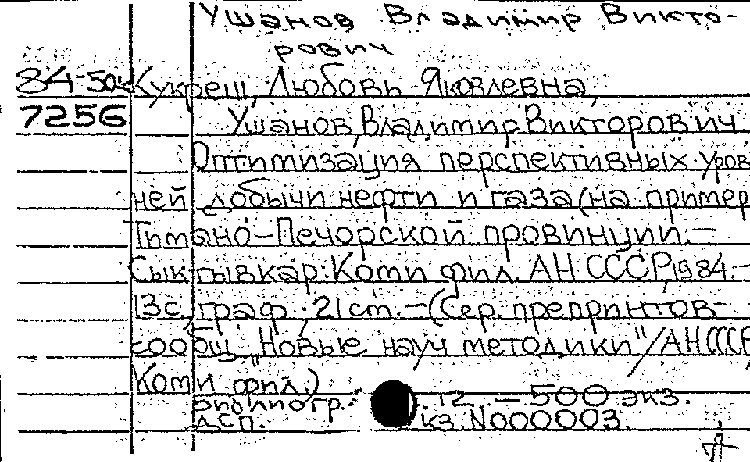 Ушанов Владимир Викто-
рович
84-50к Кукреш, Любовь Яковлевна,
7256 Ушанов, Владимир Викторович
Оптимизация перспективных уров
ней добычи нефти и газа (на пример
Тимано-Печорской провинции. –
Сыктывкар: Коми фил. АН СССР, 1984. –
13с. граф.; 21 см. – (Сер. препринтов
сообщ. "Новые науч методики" / АН СССР
Коми фил.)
12. – 500 экз.
ДСП. кз. N000003.